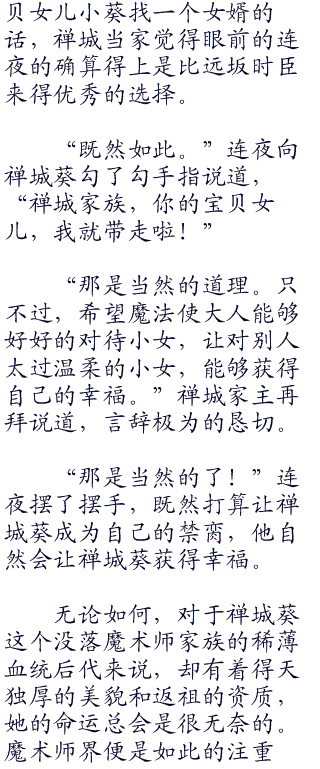 贝女儿小葵找一个女婿的
话，禅城当家觉得眼前的连
夜的确算得上是比远坂时臣
来得优秀的选择。
“既然如此。”连夜向
禅城葵勾了勾手指说道，
“禅城家族，你的宝贝女
儿，我就带走啦！”
“那是当然的道理。只
不过，希望魔法使大人能够
好好的对待小女，让对别人
太过温柔的小女，能够获得
自己的幸福。”禅城家主再
拜说道，言辞极为的恳切。
“那是当然的了！”连
夜摆了摆手，既然打算让禅
城葵成为自己的禁脔，他自
然会让禅城葵获得幸福。
无论如何，对于禅城葵
这个没落魔术师家族的稀薄
血统后代来说，却有着得天
独厚的美貌和返祖的资质，
她的命运总会是很无奈的。
魔术师界便是如此的注重